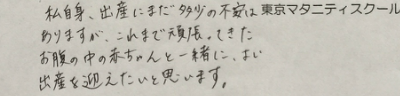 私自身、出産にまだ多少の不安は
東京マタニティスクール
ありますが、これまで頑張ってきた
お腹の中の赤ちゃんと一緒に、よい
出産を迎えたいと思います。